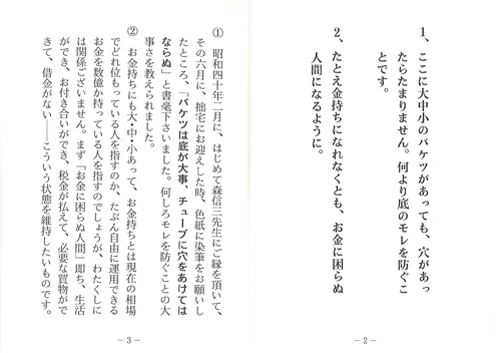 1、ここに大中小のバケツがあっても、穴があっ
たらたまりません。何より底のモレを防ぐこ
とです。
2、たとえ金持ちになれなくとも、お金に困らぬ
人間になるように。
－2－
① 昭和四十年二月に、はじめて森信三先生にご縁を頂いて、
その六月に、拙宅にお迎えした時、色紙に染筆をお願いし
たところ、「バケツは底が大事、チューブに穴をあけては
ならぬ」と書毫下さいました。何しろモレを防ぐことの大
事さを教えられました。
② お金持ちにも大・中・小あって、お金持ちとは現在の相場
でどれ位もっている人を指すのか、たぶん自由に運用できる
お金を数億か持っている人を指すのでしょうが、わたくしに
は関係ございません。まず「お金に困らぬ人間」即ち、生活
ができ、お付き合いができ、税金が払えて、必要な買物がで
きて、借金がない――こういう状態を維持したいものです。
－3－